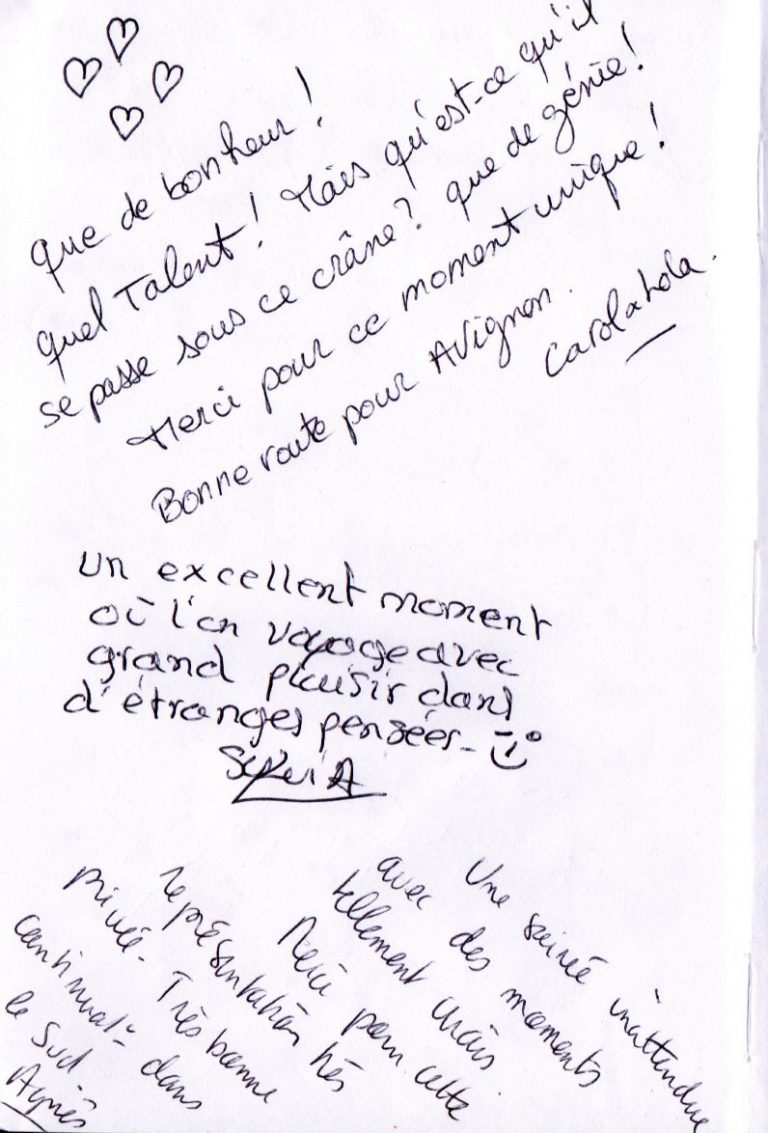 que de bonheur !
quel Talent ! Mais qu'est-ce qu'il
se passe sous ce crâne ? que de génie !
Merci pour ce moment unique !
Bonne route pour Avignon.
Carolahola.
un excellent moment
où l'on voyage avec
grand plaisir dans
d'étranges pensées
Une soirée inattendue
avec des moments
tellement vrais.
Merci pour cette
représentation très
privée. Très bonne
continuat° dans
le Sud.
Agnès